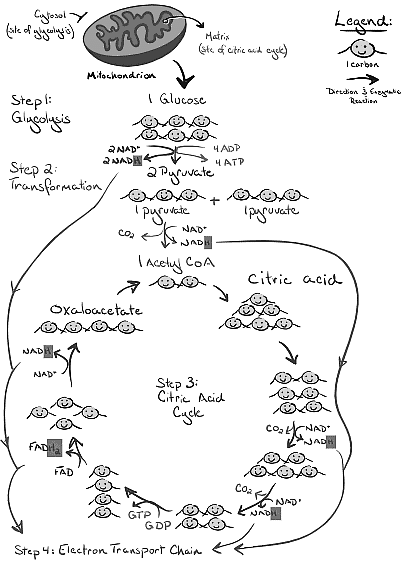 Cytosol
(site of glycolysis)
Matrix
(site of citric acid cycle)
Mitochondrion
Legend:
1 carbon
Direction & Enzymatic
Reaction
Step 1:
Glycolysis
1 Glucose
2 NAD⁺
2 NADH
4 ADP
4 ATP
2 Pyruvate
Step 2:
Transformation
+
1 pyruvate
1 pyruvate
CO₂
NAD⁺
NADH
1 Acetyl CoA
Citric acid
Oxaloacetate
NADH
NAD⁺
Step 3:
Citric Acid
Cycle
CO₂
NAD⁺
NADH
FADH₂
FAD
CO₂
NAD⁺
NADH
GTP
GDP
Step 4: Electron Transport Chain